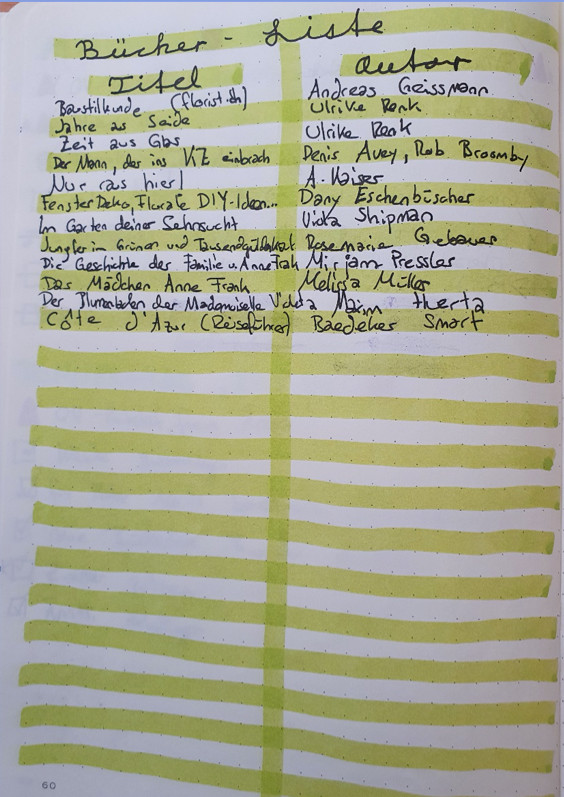 Bücher - Liste
Titel Autor
Baustilkunde (florist.) Andreas Geissmann
Jahre aus Seide Ulrike Renk
Zeit aus Glas Ulrike Renk
Der Mann, der ins KZ einbrach Denis Avey, Rob Broomby
Nur raus hier! A. Kaiser
Fenster Deko, Florale DIY-Ideen... Dany Eschenbüscher
Im Garten deiner Sehnsucht Vicka Shipman
Jungfer im Grünen und Tausendgüldenkraut Rosemarie Gebauer
Die Geschichte der Familie v. Anne Frank Mirjam Pressler
Das Mädchen Anne Frank Melissa Müller
Der Blumenladen der Mademoiselle Maim Huerta
Côte d'Azur (Reiseführer) Baedeker Smart
60